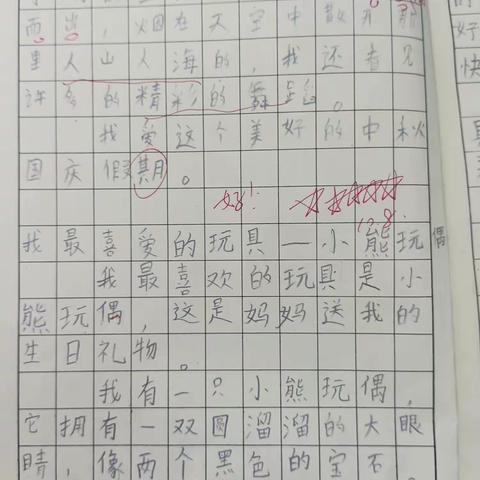 而出，烟在天空中散开，那
里人山人海的，我还看见
许多的精彩的舞蹈。
我爱这个美好的中秋
国庆假期。
好！
12.8
我最喜爱的玩具一小熊玩偶
我最喜欢的玩具是小
熊玩偶，这是妈妈送我的
生日礼物。
我有一只小熊玩偶，
它拥有一双圆溜溜的大眼
睛，像两个黑色的宝石。
好
快